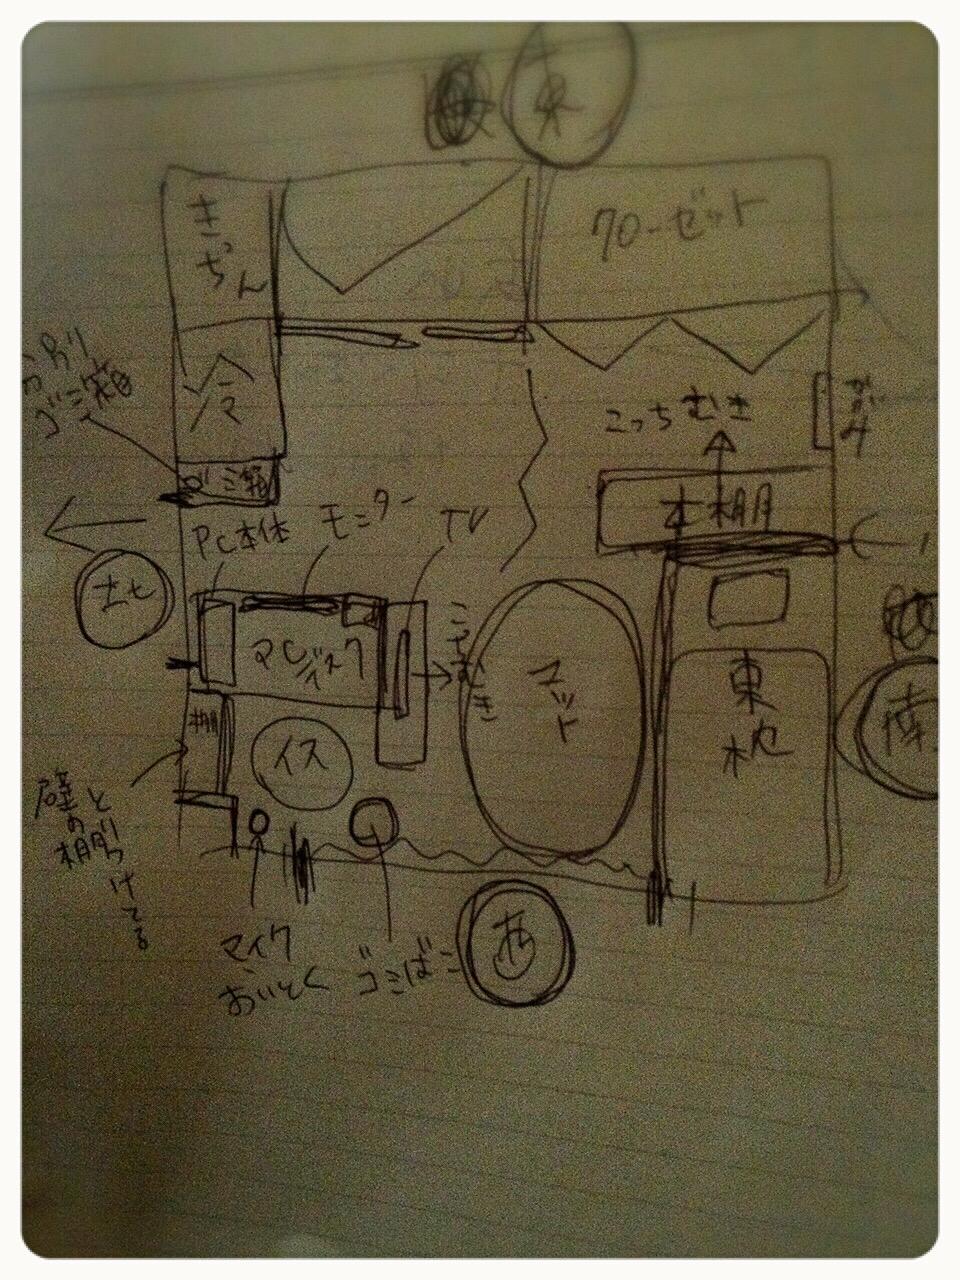 東
きっちん
クローゼット
冷
ゴミ箱
ゴミ箱
かがみ
こっちむき
本棚
PC本体
モニター
TV
北
PCデスク
こっちむき
マット
東枕
南
棚
イス
壁と
の棚
けてる
マイク
おいとく
ゴミばこ
西